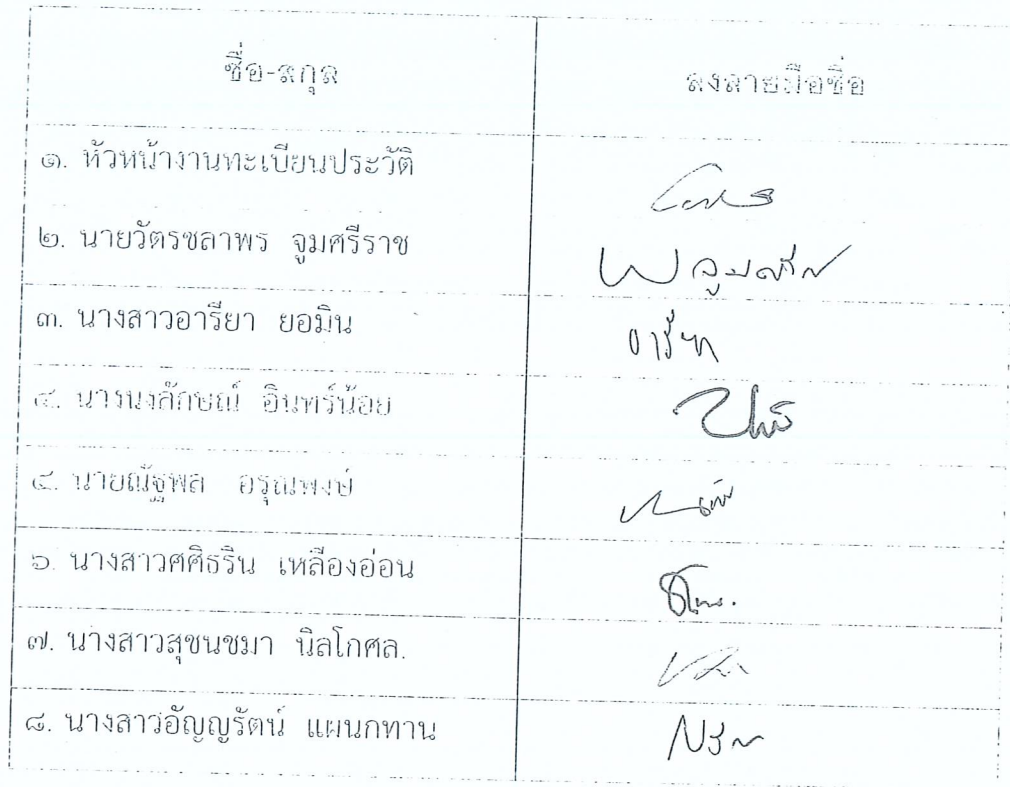 ชื่อ-สกุล ลงลายมือชื่อ
๑. หัวหน้างานทะเบียนประวัติ
๒. นายวัตรชลาพร จูมศรีราช
๓. นางสาวอารียา ยอมิน อารียา
๔. นางนงลักษณ์ อินทร์น้อย
๕. นายณัฐพล อรุณพงษ์
๖. นางสาวศศิธริน เหลืองอ่อน
๗. นางสาวสุชนชมา นิลโกศล.
๘. นางสาวอัญญรัตน์ แผนกทาน